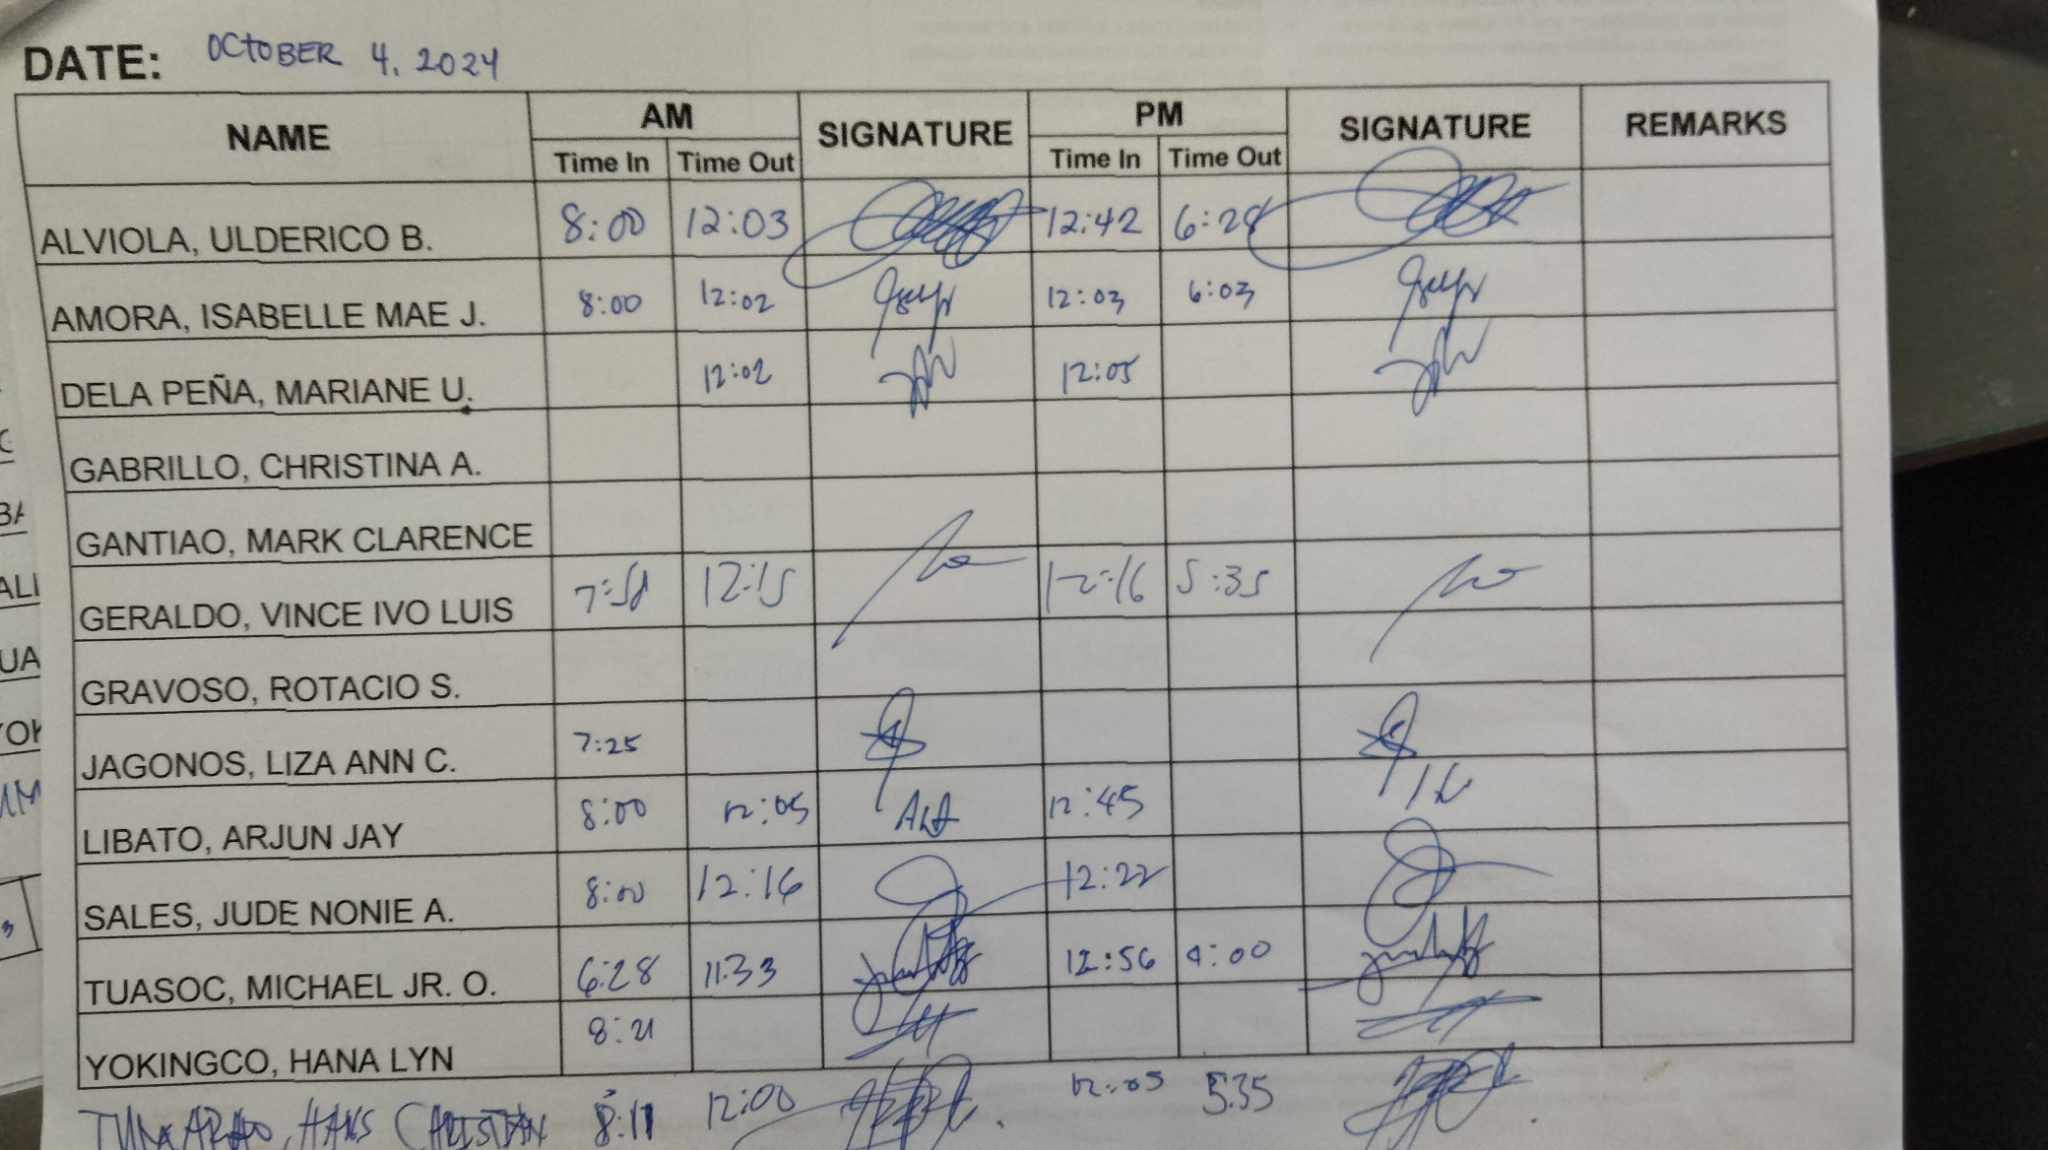 DATE: OCTOBER 4, 2024
NAME AM SIGNATURE PM SIGNATURE REMARKS
Time In Time Out Time In Time Out
ALVIOLA, ULDERICO B. 8:00 12:03 12:42 6:28
AMORA, ISABELLE MAE J. 8:00 12:02 12:03 6:03
DELA PEÑA, MARIANE U. 12:02 12:05
GABRILLO, CHRISTINA A.
GANTIAO, MARK CLARENCE
GERALDO, VINCE IVO LUIS 12:15 12:16 5:35
GRAVOSO, ROTACIO S.
JAGONOS, LIZA ANN C. 7:25
LIBATO, ARJUN JAY 8:00 12:05 12:45
SALES, JUDE NONIE A. 8:00 12:16 12:22
TUASOC, MICHAEL JR. O. 6:28 11:33 12:56 4:00
YOKINGCO, HANA LYN 8:21
HANS CHRISTIAN 8:11 12:00 12:05 5:35